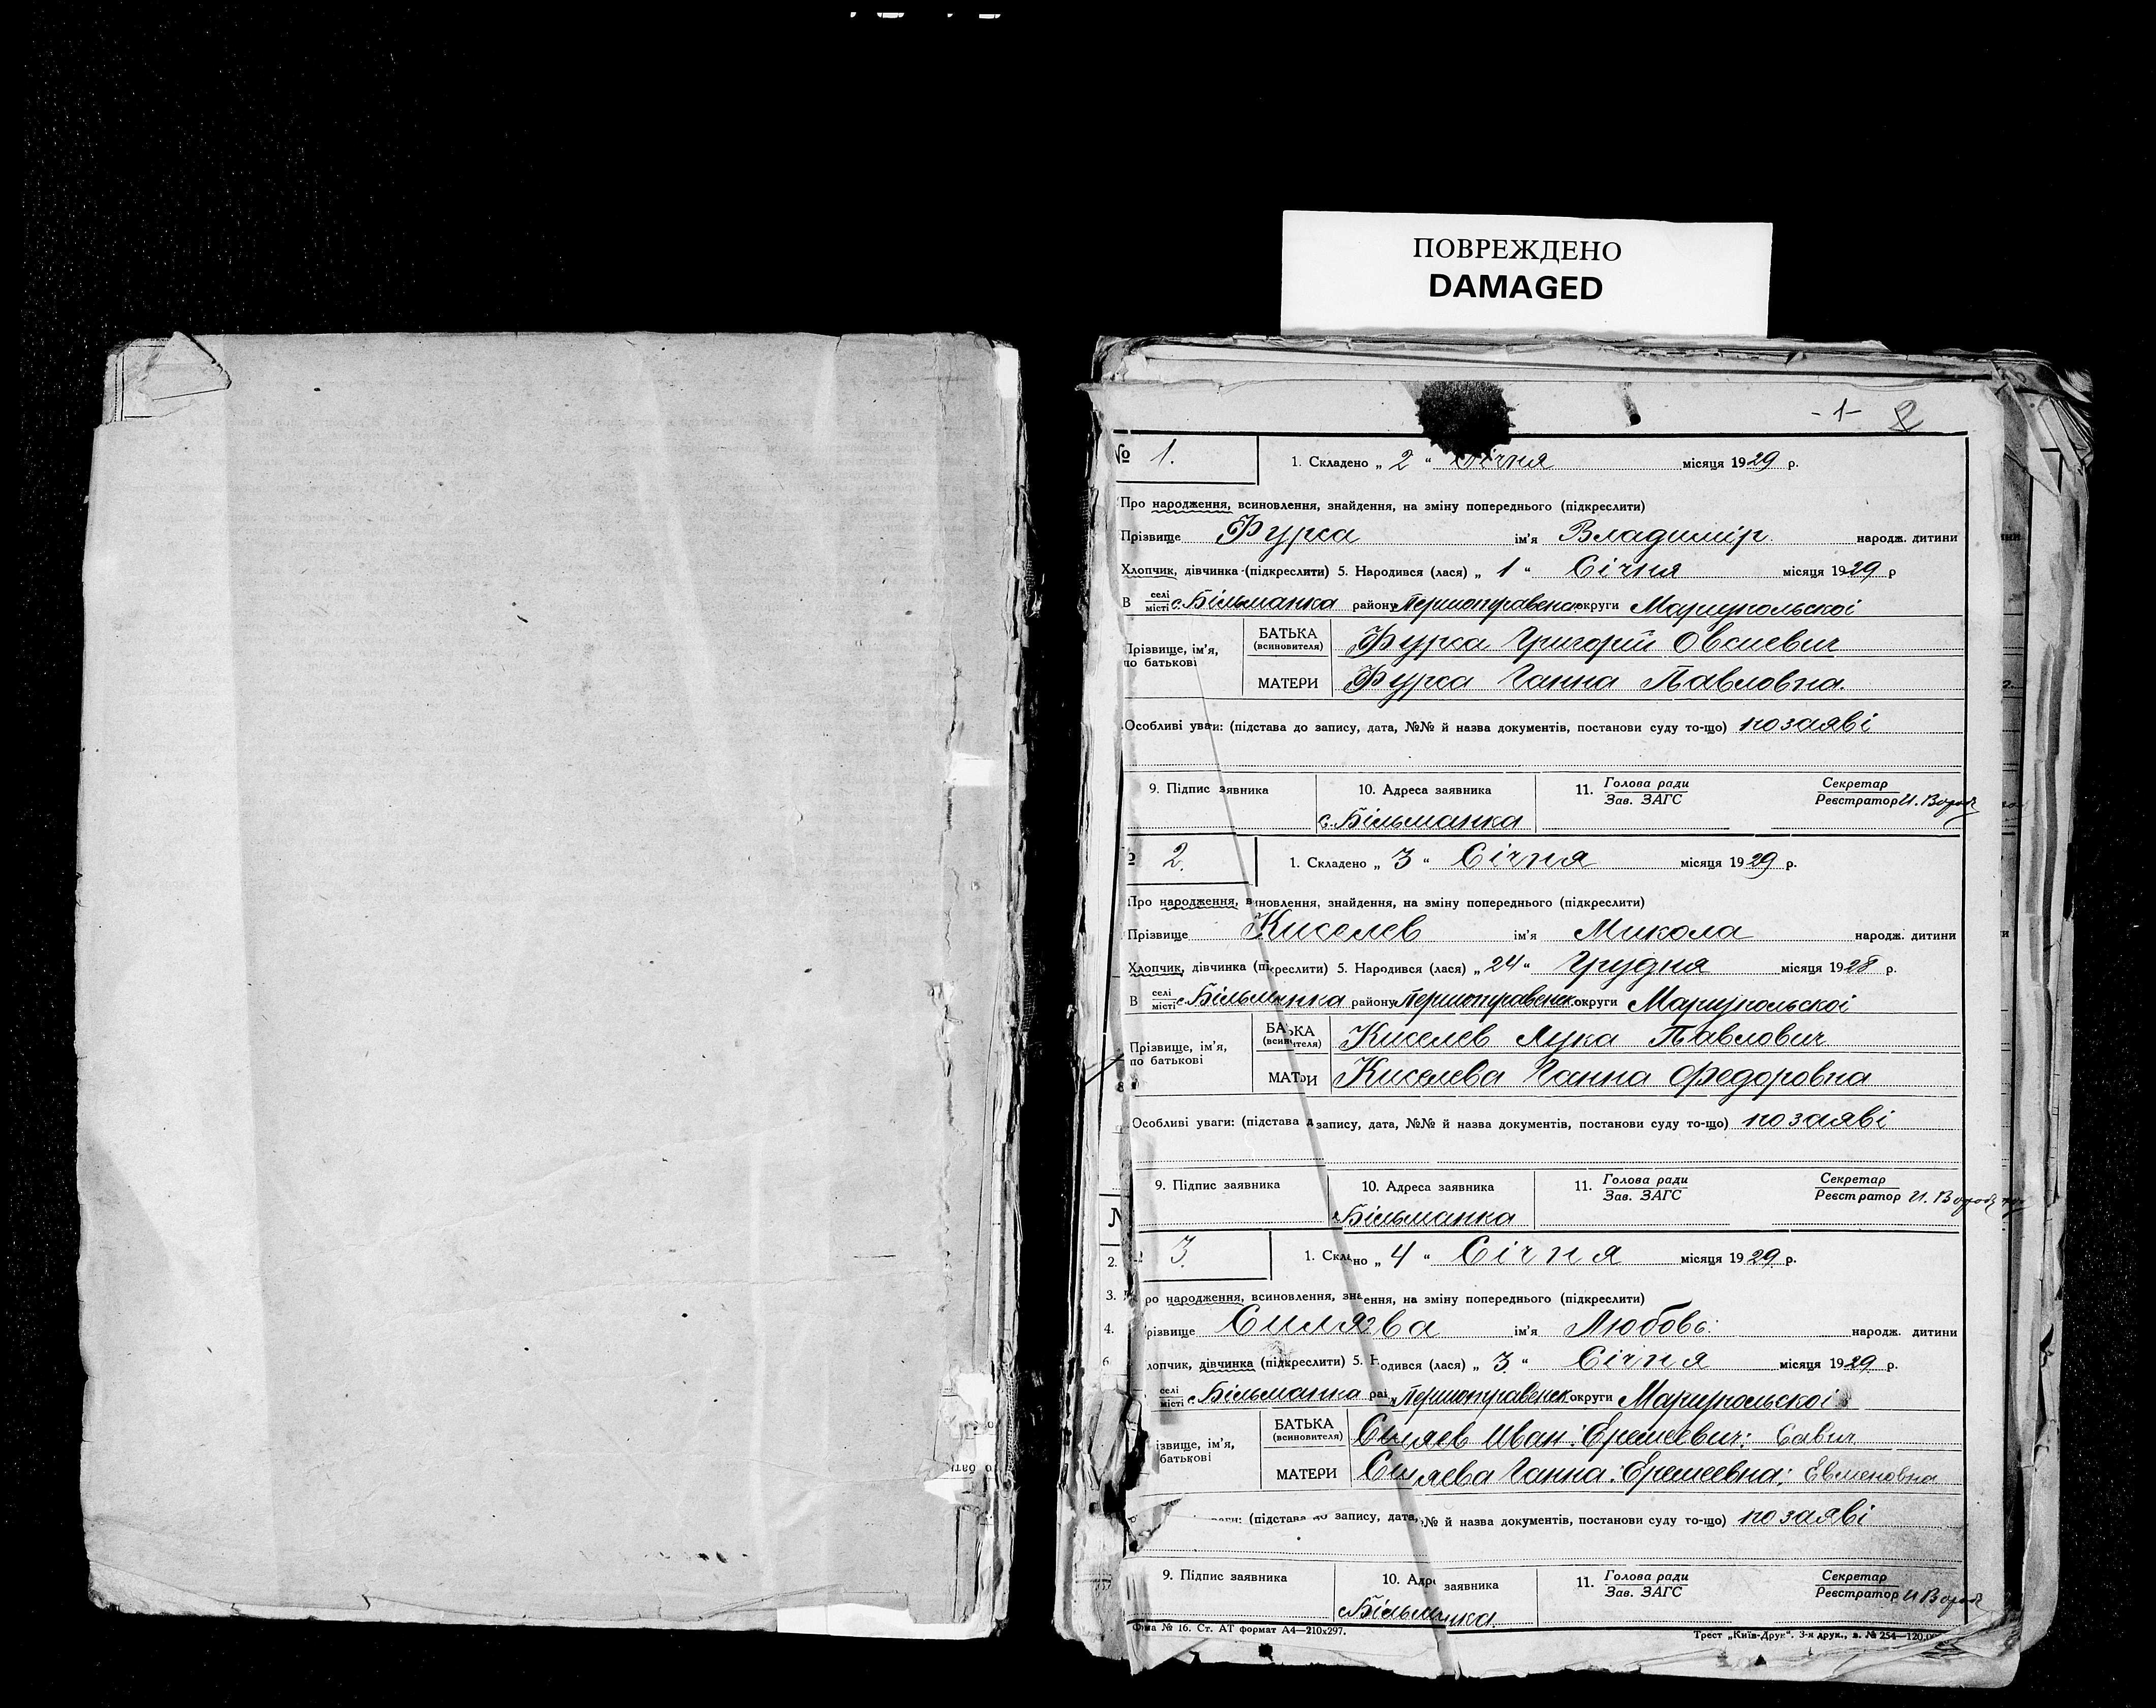 ПОВРЕЖДЕНО
DAMAGED
-1- 2
№ 1. 1. Складено „ 2 “ Січня місяця 1929 р.
Про народження, всиновлення, знайдення, на зміну попереднього (підкреслити)
Прізвище Фурса ім'я Владимір народж. дитини
Хлопчик, дівчинка (підкреслити) 5. Народився (лася) „ 1 “ Січня місяця 1929 р
В селі
місті с. Більманка району округи Маріупольскоі
Прізвище, ім'я,
по батькові
БАТЬКА
(всиновителя) Фурса Григорій Овсиевич
МАТЕРИ Фурса Ганна Павловна.
Особливі уваги: (підстава до запису, дата, №№ й назва документів, постанови суду то-що) по заяві
9. Підпис заявника 10. Адреса заявника 11. Голова ради
Зав. ЗАГС Секретар
Реєстратор
с. Більманка
2. 1. Складено „ 3 “ Січня місяця 1929 р.
Про народження, в иновлення, знайдення, на зміну попереднього (підкреслити)
Прізвище Киселев ім'я Микола народж. дитини
Хлопчик, дівчинка (пі креслити) 5. Народився (лася) „ 24 “ Грудня місяця 1928 р.
В селі
місті с. Більманка району округи Маріупольскоі
Прізвище, ім'я,
по батькові
БА ЬКА
(всин ителя) Киселев Лука Павлович
МАТ РИ Киселева Ганна Федоровна
Особливі уваги: (підстава д запису, дата, №№ й назва документів, постанови суду то-що) по заяві
9. Підпис заявника 10. Адреса заявника 11. Голова ради
Зав. ЗАГС Секретар
Реєстратор
Більманка
3. 1. Скла но „ 4 “ Січня місяця 1929 р.
ро народження, всиновлення, зна ення, на зміну попереднього (підкреслити)
різвище Силяева ім'я Любовь: народж. дитини
лопчик, дівчинка (підкреслити) 5. Народився (лася) „ 3 “ Січня місяця 1929 р.
селі
місті с. Більманка рай округи Маріупольскоі
ізвище, ім'я,
батькові
БАТЬКА
(всиновителя) Силяев Иван: Еремеевич: Савич
МАТЕРИ Силяева Ганна: Еремеевна: Евменовна
ваги: (підстава до запису, дата, № й назва документів, постанови суду то-що) по заяві
9. Підпис заявника 10. Адре заявника 11. Голова ради
Зав. ЗАГС Секретар
Реєстратор
с Більманка
Фома № 16. Ст. АТ формат А4—210х297. Трест „Київ-Друк“. 3-я друк., з. № 254—120.00